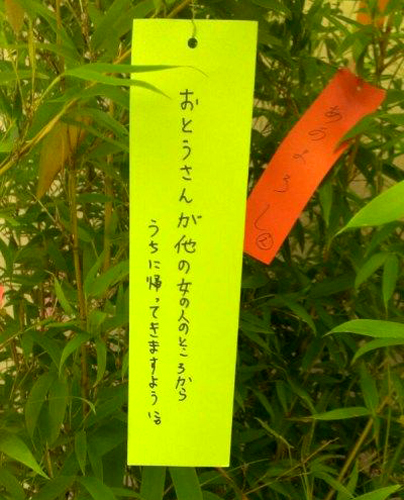 おとうさんが他の女の人のところから
うちに帰ってきますように。